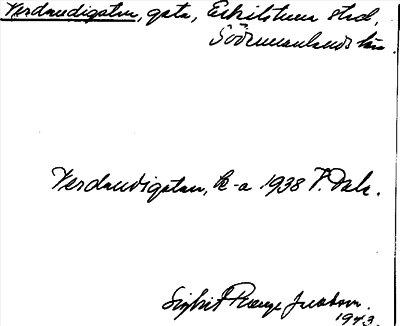 Verdandigatan, gata, Eskilstuna stad,
Södermanlands län
Verdandigatan, k-a 1938 P. Dahl.
Sigbrit Jacobson.
1943.